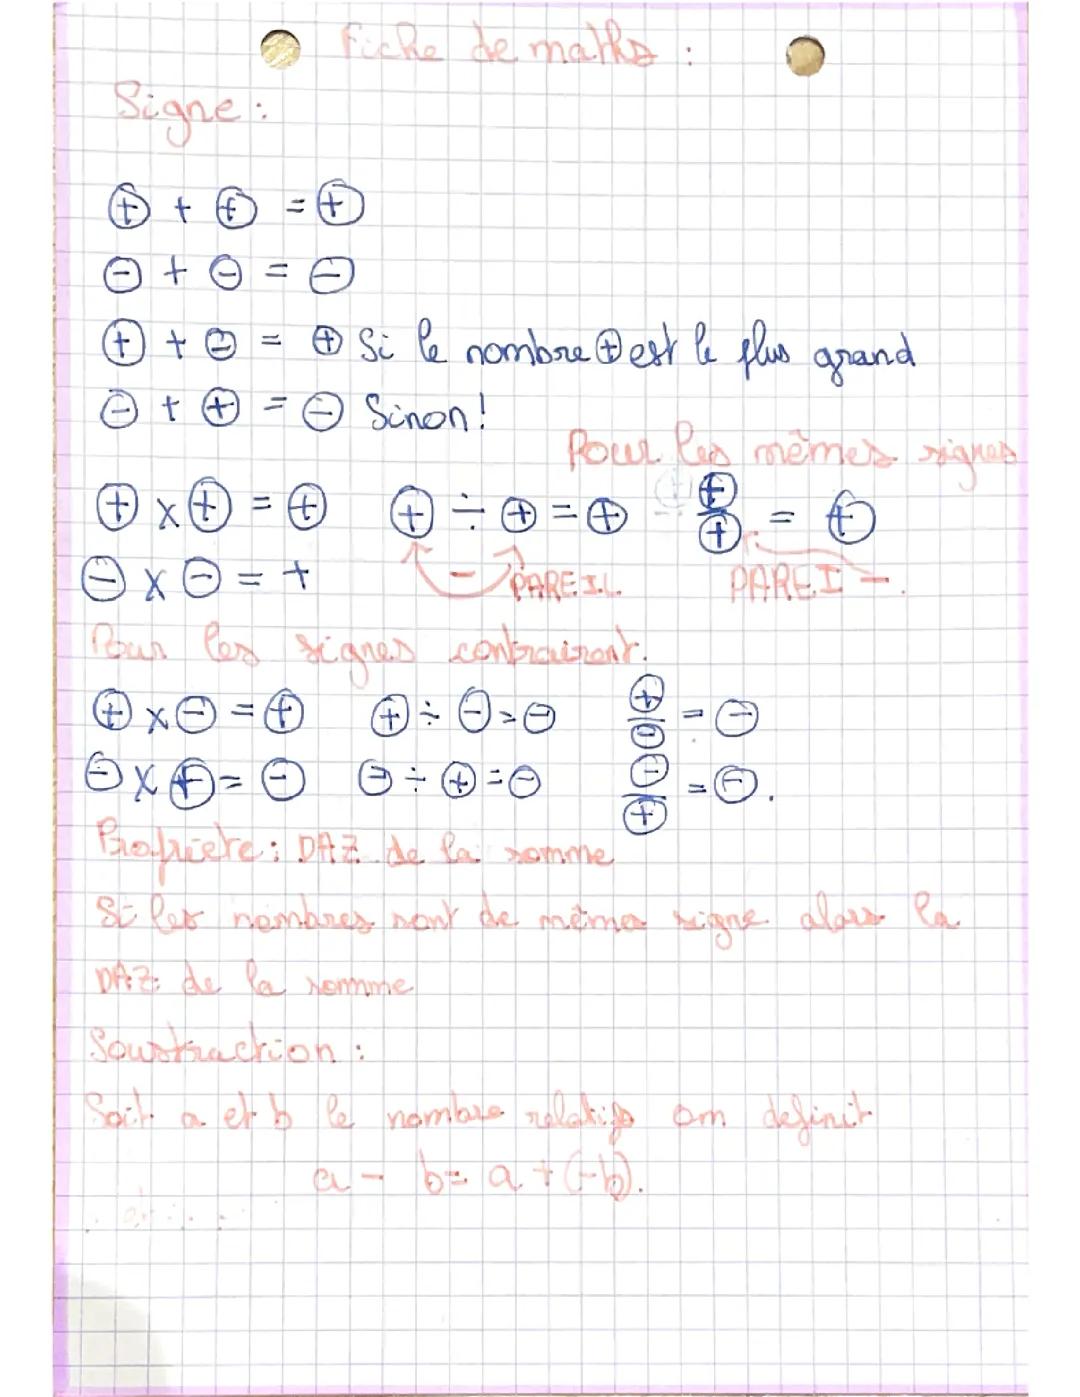 Fiche de maths :
Signe :
⊕ + ⊕ = ⊕
⊖ + ⊖ = ⊖
⊕ + ⊖ = ⊕ Si le nombre ⊕ est le plus grand
⊖ + ⊕ = ⊖ Sinon !
Pour les mêmes signes
⊕ x ⊕ = ⊕ ⊕ ÷ ⊕ = ⊕ ⊕/⊕ = ⊕
⊖ x ⊖ = + - PAREIL PAREI -.
Pour les signes contrairent.
⊕ x ⊖ = ⊕ ⊕ ÷ ⊖ = ⊖ ⊕/⊖ = ⊖
⊖ x ⊕ = ⊖ ⊖ ÷ ⊕ = ⊖ ⊖/⊕ = ⊖.
Propriete : DAZ de la somme
Si les nombres sont de mêmes signe alors la
DAZ de la somme
Soustraction :
Soit a et b le nombre relatifs on definit
a - b = a + (-b).